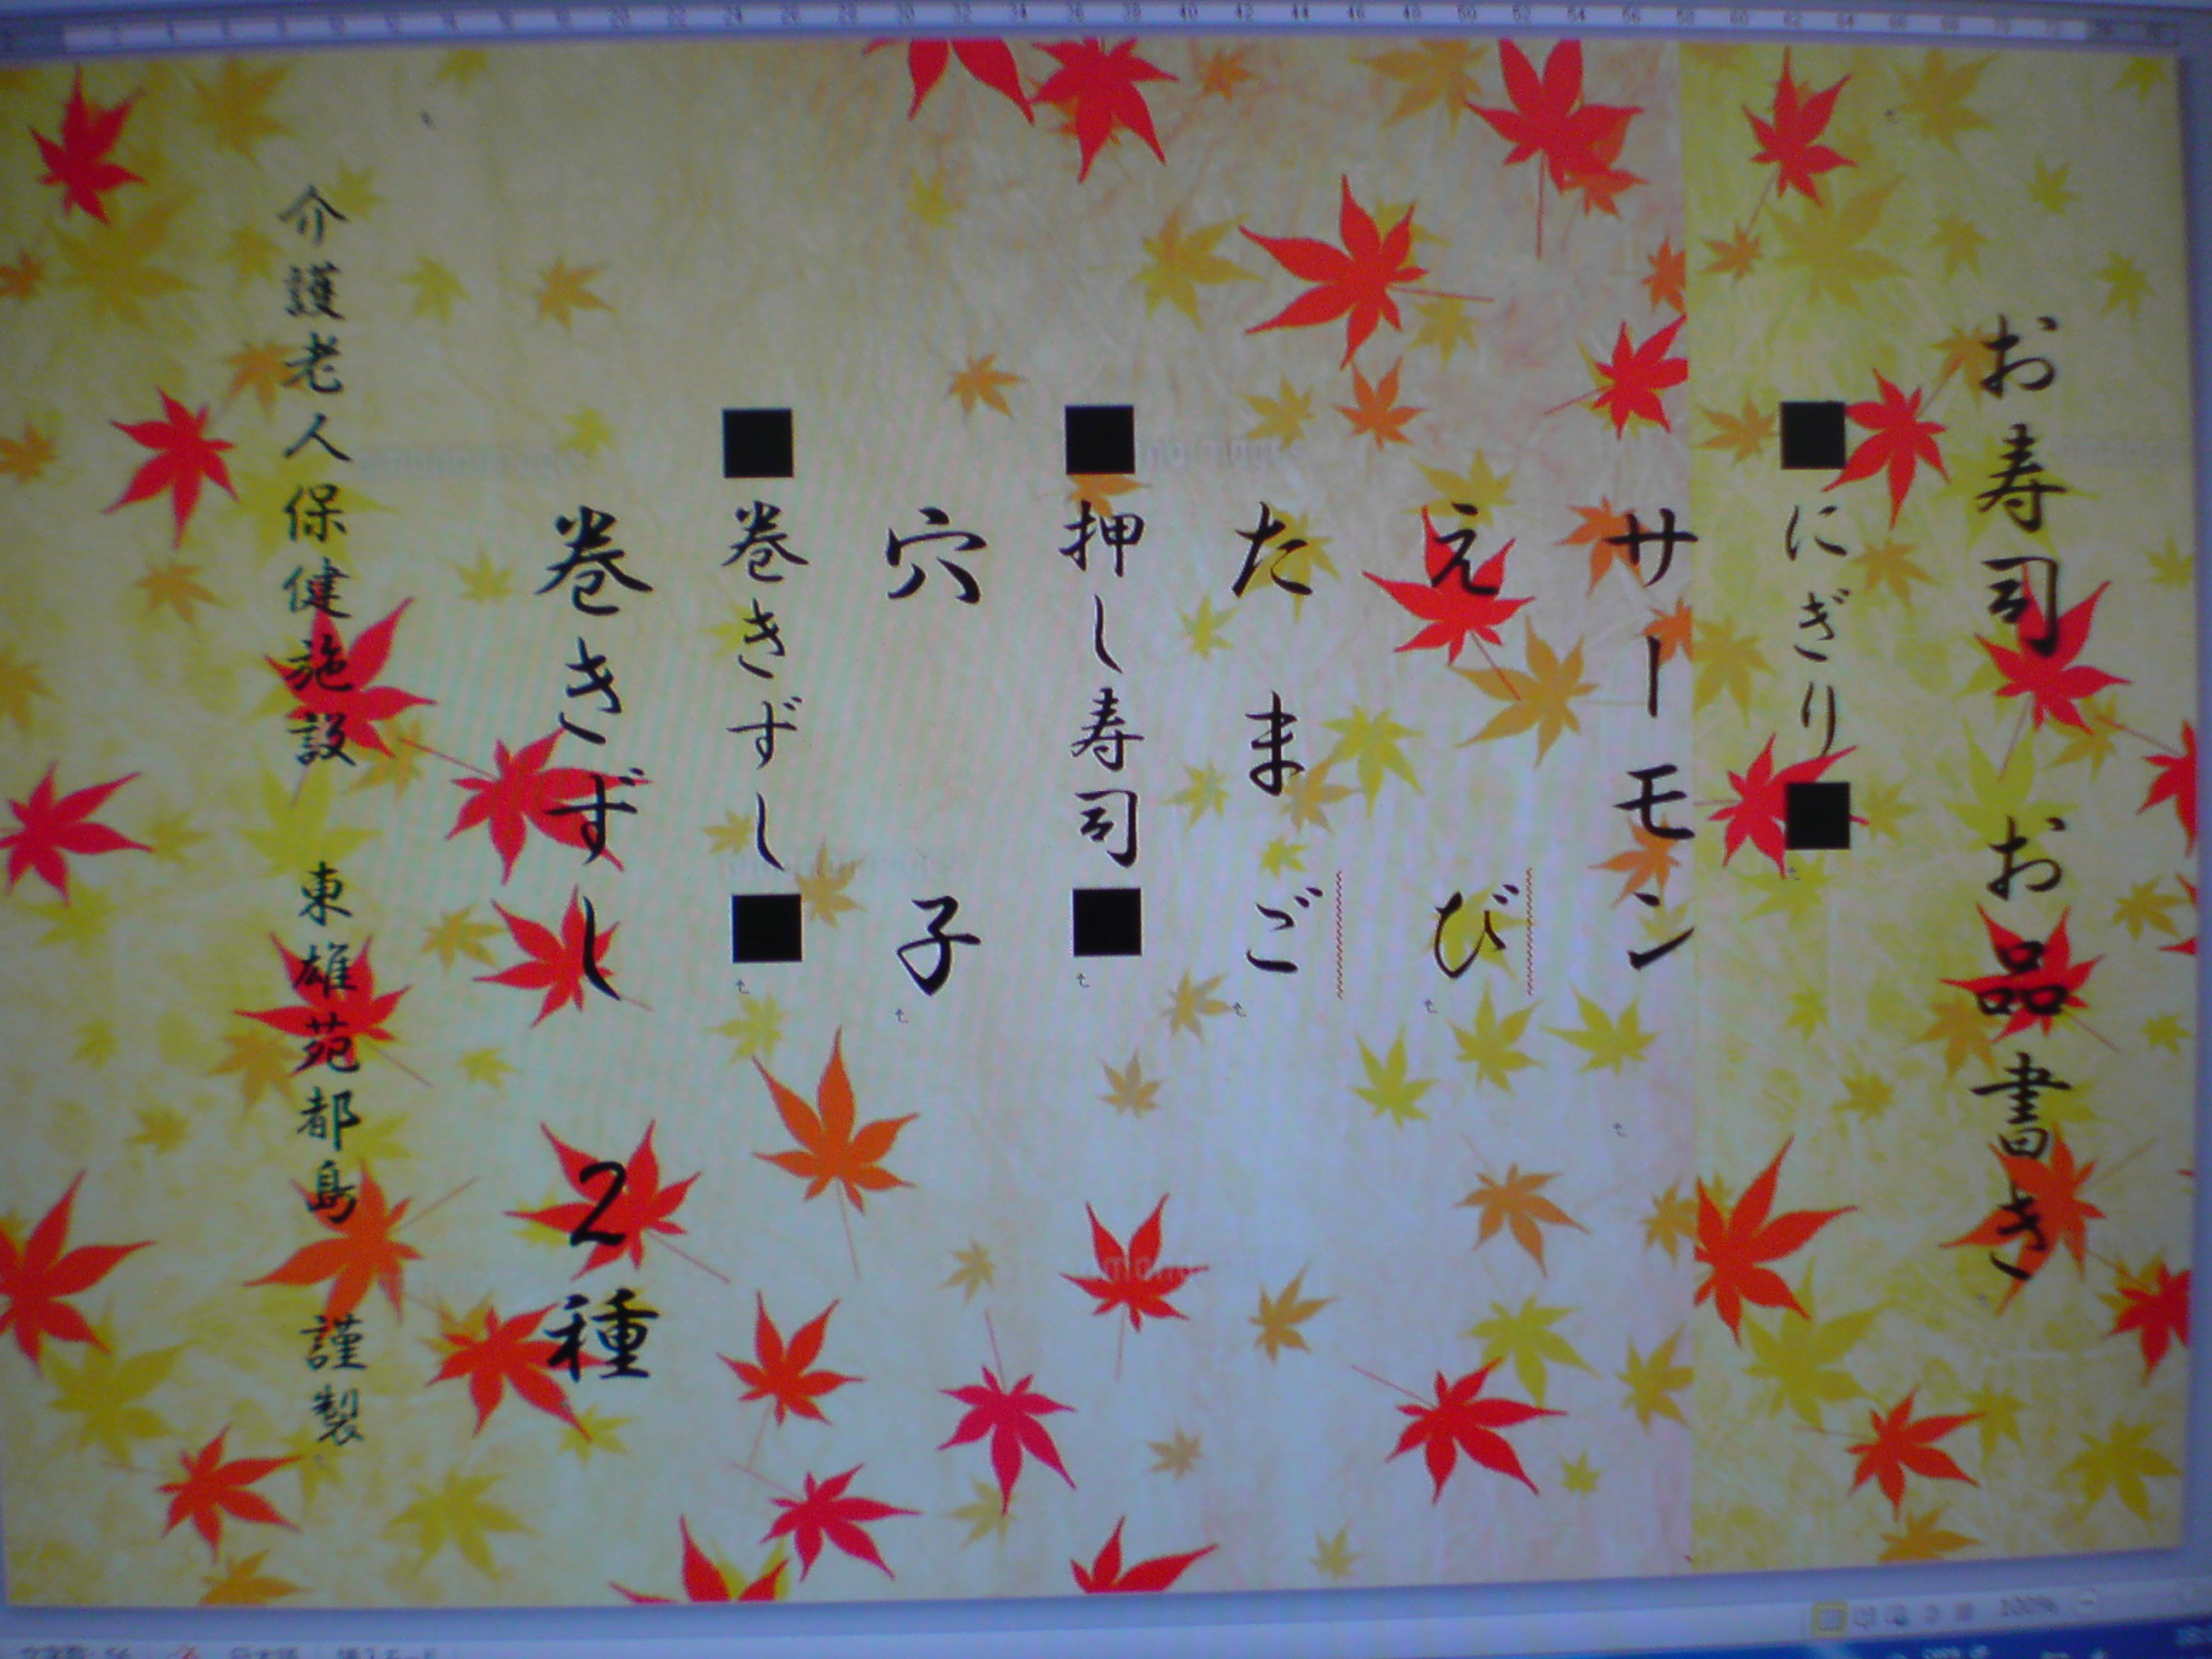 お寿司 お品書き
■にぎり■
サーモン
えび
たまご
■押し寿司■
穴子
■巻きずし■
巻きずし 2種
介護老人保健施設 東雄苑都島 謹製
100%